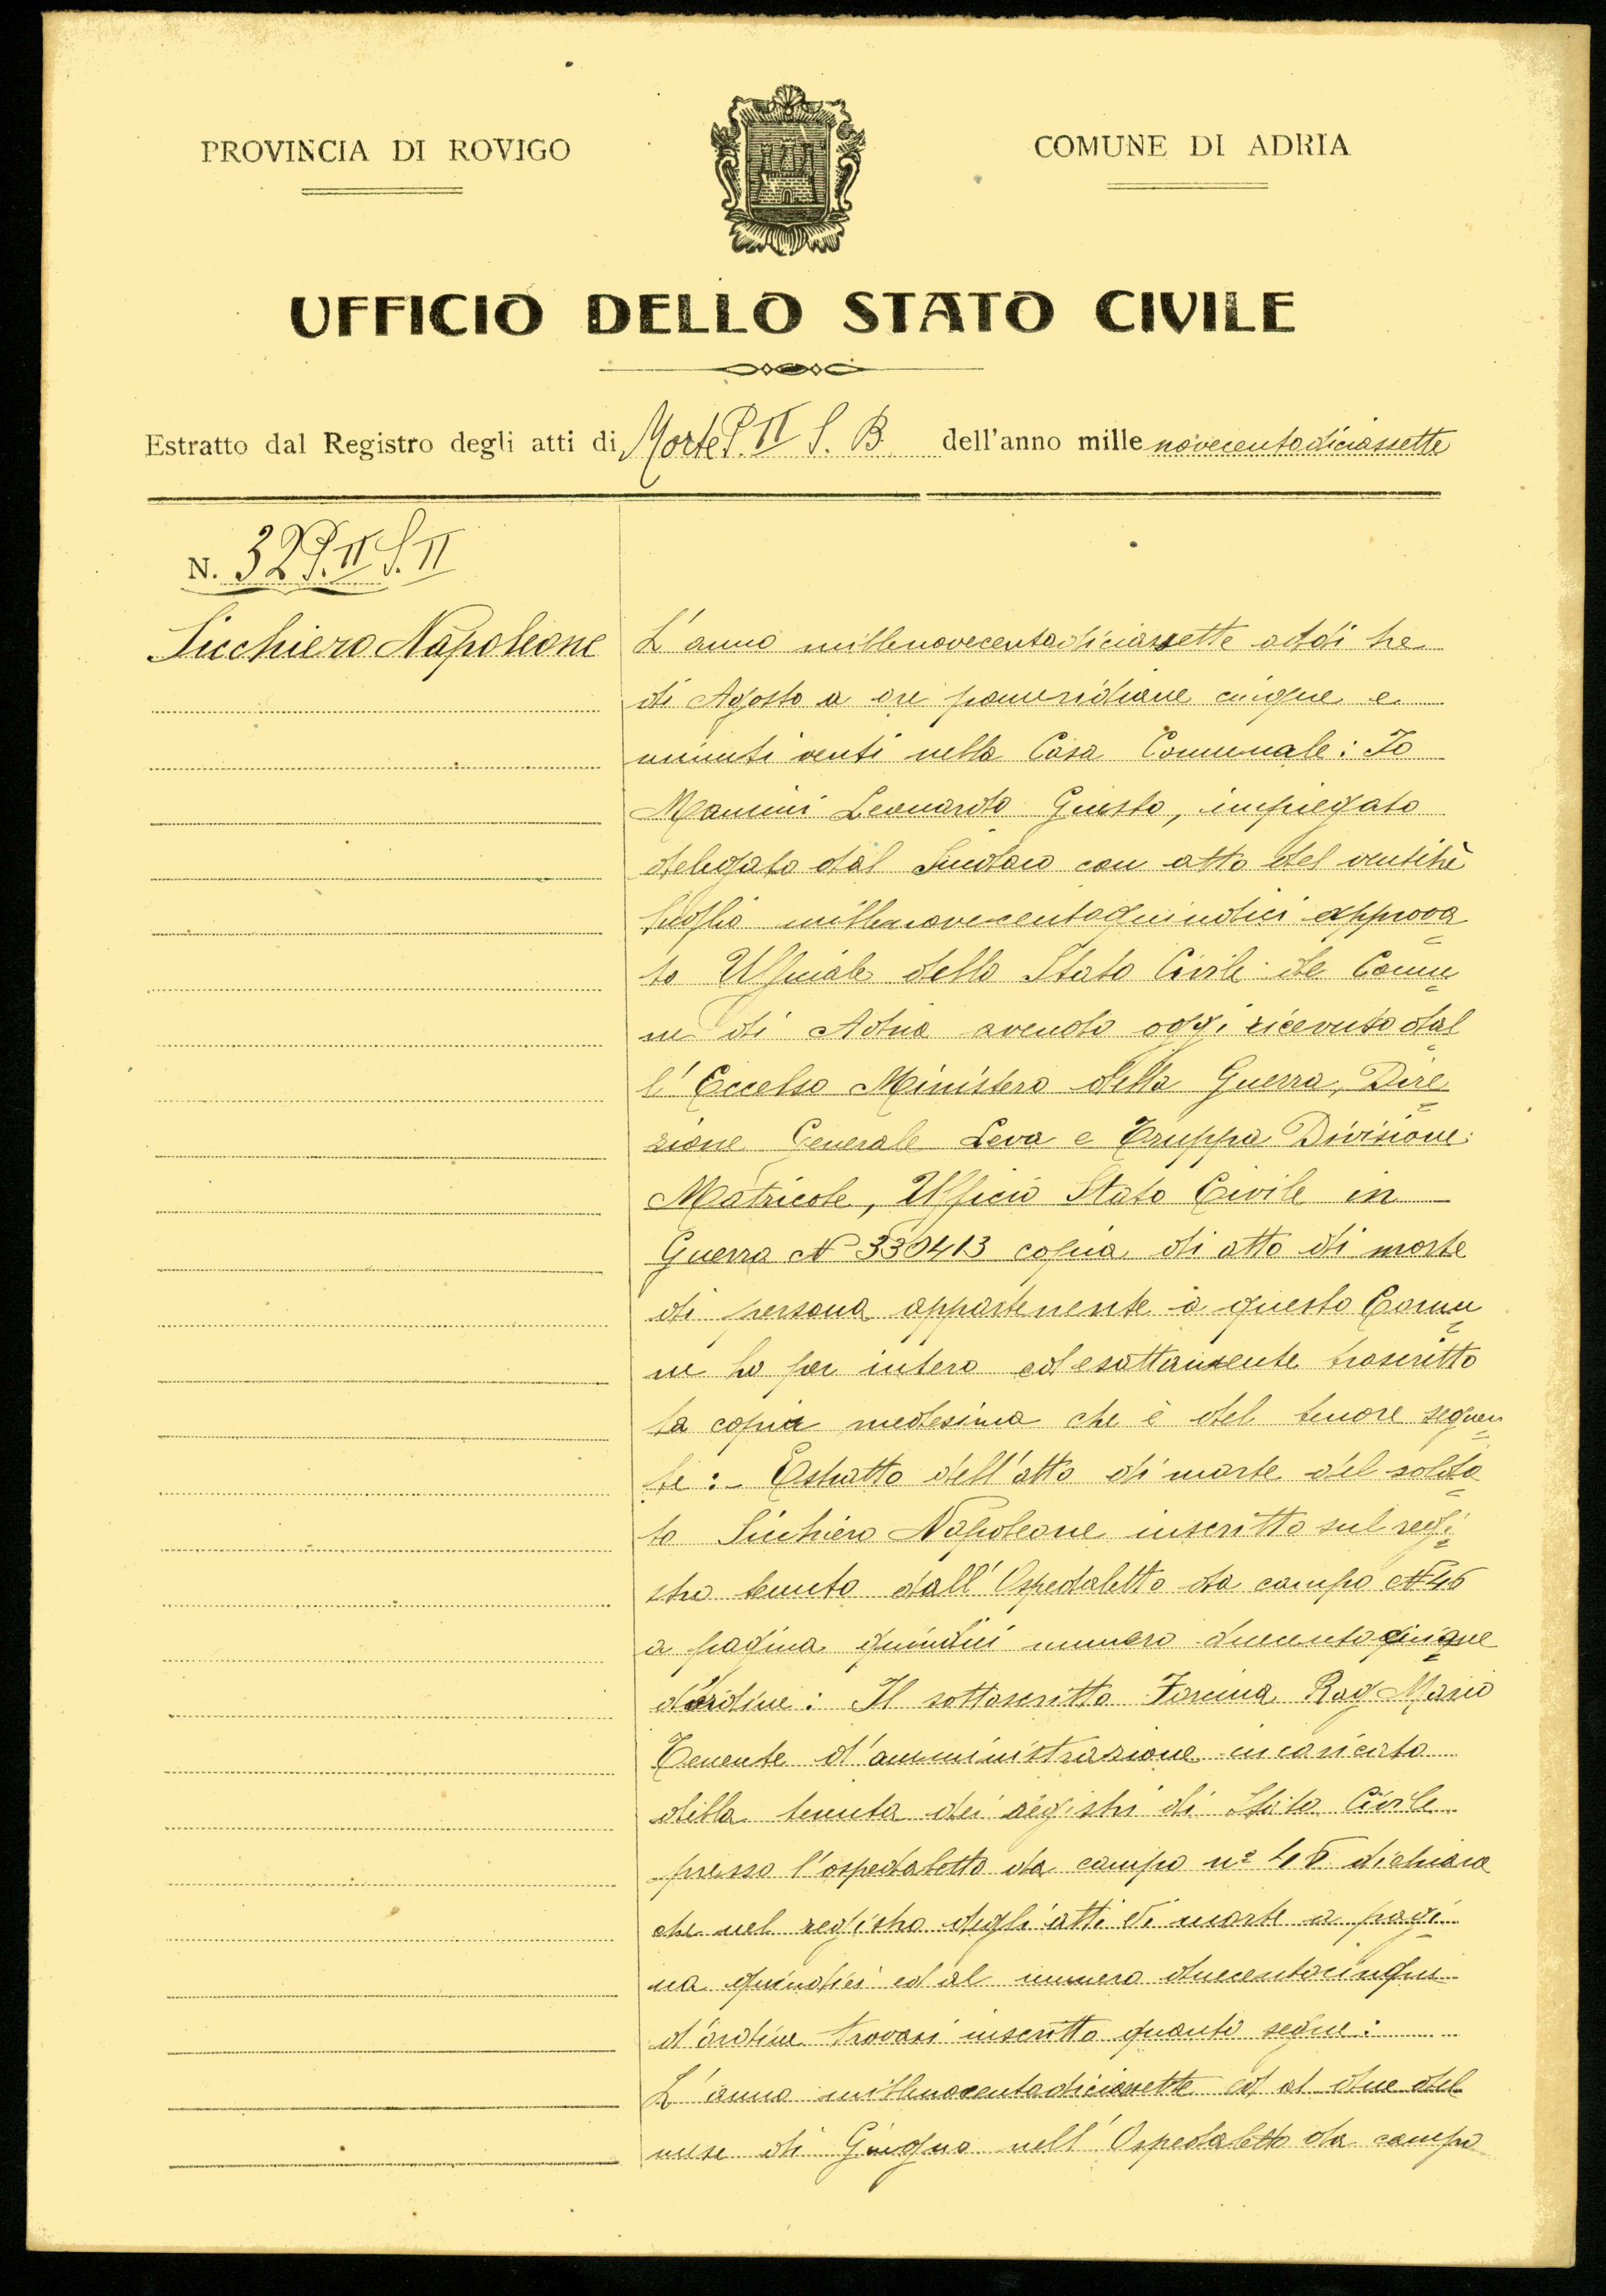 PROVINCIA DI ROVIGO
COMUNE DI ADRIA
UFFICIO DELLO STATO CIVILE
Estratto dal Registro degli atti di Morte P. II S. B dell'anno mille novecentodiciassette
N. 32 P. II S. II
Sicchiero Napoleone
L'anno millenovecentodiciassette addì tre
di Agosto a ore pomeridiane cinque e
minuti venti nella Casa Comunale: Io
Mamini Leonardo Giusto, impiegato
delegato dal Sindaco con atto del ventitrè
luglio millenovecentoquindici approva
to Ufficiale dello Stato Civile del Comu
ne di Adria avendo oggi ricevuto dal
l'Eccelso Ministero della Guerra, Dire
zione Generale Leva e Truppa Divisione
Matricole, Ufficio Stato Civile in
Guerra N 330413 copia di atto di morte
di persona appartenente a questo Comu
ne ho per intero ed esattamente trascritto
la copia medesima che è del tenore seguen
te: Estratto dell'atto di morte del solda
to Sicchiero Napoleone inscritto sul regi
stro tenuto dall'Ospedaletto da campo N 46
a pagina quindici numero duecentocinque
d'ordine: Il sottoscritto Farina Rag Mario
Tenente d'amministrazione incaricato
della tenuta dei registri di Stato Civile
presso l'ospedaletto da campo n° 46 dichiara
che nel registro degli atti di morte a pagi
na quindici ed al numero duecentocinque
d'ordine trovasi inscritto quanto segue:
L'anno millenovecentodiciassette ed al due del
mese di Giugno nell'Ospedaletto da campo